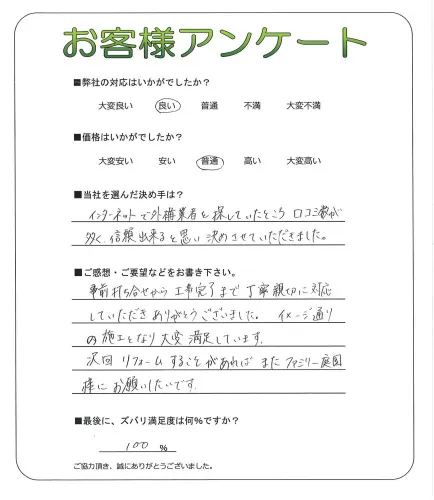 お客様アンケート
■弊社の対応はいかがでしたか？
大変良い 良い 普通 不満 大変不満
■価格はいかがでしたか？
大変安い 安い 普通 高い 大変高い
■当社を選んだ決め手は？
インターネットで外構業者を探していたところ 口コミ数が
多く、信頼出来ると思い決めさせていただきました。
■ご感想・ご要望などをお書き下さい。
事前打ち合せから工事完了まで丁寧親切に対応
していただきありがとうございました。 イメージ通り
の施工となり大変満足しています。
次回リフォームすることがあればまたファミリー庭園
様にお願いしたいです。
■最後に、ズバリ満足度は何％ですか？
100 ％
ご協力頂き、誠にありがとうございました。